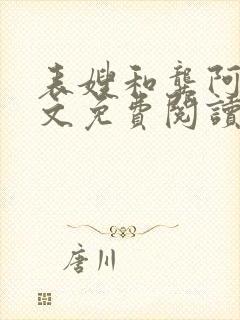 表嫂和龚阿
文免費閱讀
唐川